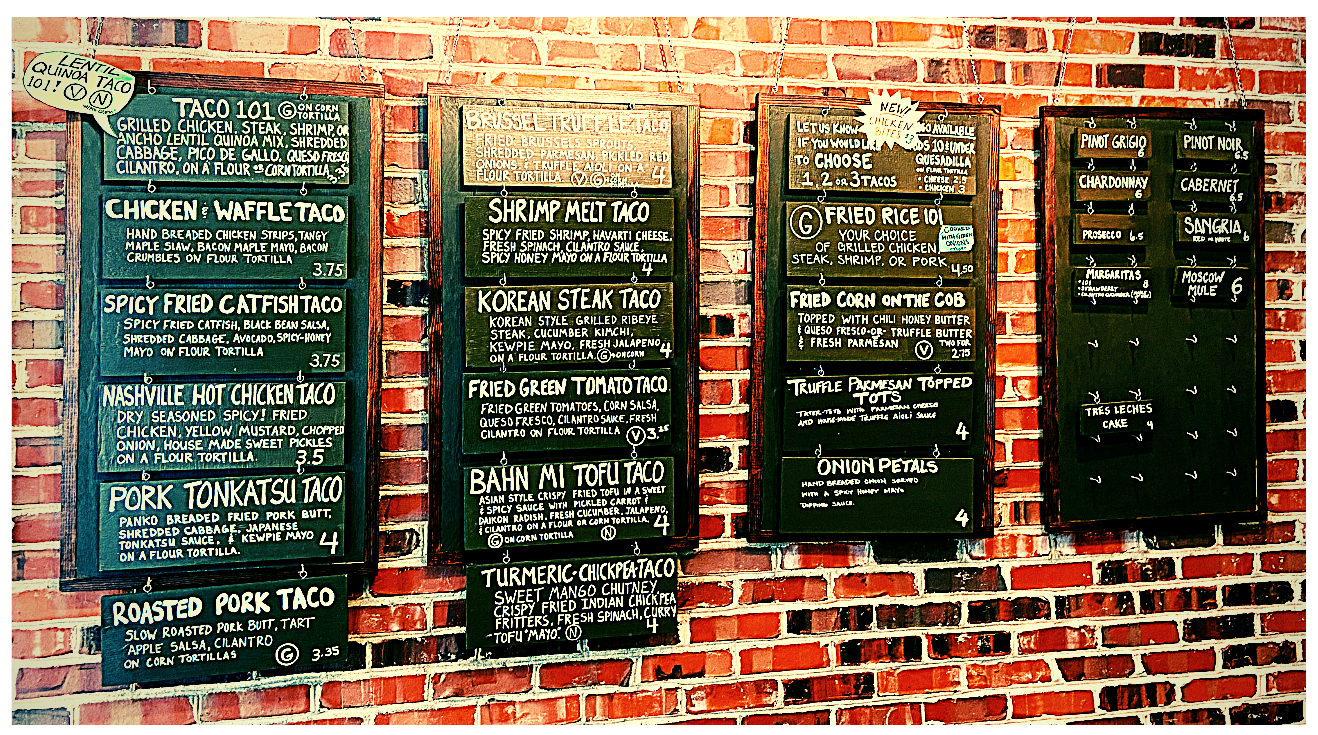 LENTIL
QUINOA TACO
101! V N
TACO 101 G ON CORN TORTILLA
GRILLED CHICKEN, STEAK, SHRIMP, OR
ANCHO LENTIL QUINOA MIX, SHREDDED
CABBAGE, PICO DE GALLO, QUESO FRESCO,
CILANTRO, ON A FLOUR OR CORN TORTILLA 3.35
CHICKEN & WAFFLE TACO
HAND BREADED CHICKEN STRIPS, TANGY
MAPLE SLAW, BACON MAPLE MAYO, BACON
CRUMBLES ON FLOUR TORTILLA
3.75
SPICY FRIED CATFISH TACO
SPICY FRIED CATFISH, BLACK BEAN SALSA,
SHREDDED CABBAGE, AVOCADO, SPICY-HONEY
MAYO ON FLOUR TORTILLA
3.75
NASHVILLE HOT CHICKEN TACO
DRY SEASONED SPICY! FRIED
CHICKEN, YELLOW MUSTARD, CHOPPED
ONION, HOUSE MADE SWEET PICKLES
ON A FLOUR TORTILLA. 3.5
PORK TONKATSU TACO
PANKO BREADED FRIED PORK BUTT,
SHREDDED CABBAGE, JAPANESE
TONKATSU SAUCE, & KEWPIE MAYO
ON A FLOUR TORTILLA. 4
ROASTED PORK TACO
SLOW ROASTED PORK BUTT, TART
APPLE SALSA, CILANTRO
ON CORN TORTILLAS G 3.35
BRUSSEL TRUFFLE TACO
FRIED BRUSSELS SPROUTS,
SHREDDED PARMESAN, PICKLED RED
ONIONS & TRUFFLE AIOLI ON A
FLOUR TORTILLA. V G 4
SHRIMP MELT TACO
SPICY FRIED SHRIMP, HAVARTI CHEESE,
FRESH SPINACH, CILANTRO SAUCE,
SPICY HONEY MAYO ON A FLOUR TORTILLA
4
KOREAN STEAK TACO
KOREAN STYLE GRILLED RIBEYE
STEAK, CUCUMBER KIMCHI,
KEWPIE MAYO, FRESH JALAPENO
ON A FLOUR TORTILLA. G ON CORN 4
FRIED GREEN TOMATO TACO
FRIED GREEN TOMATOES, CORN SALSA,
QUESO FRESCO, CILANTRO SAUCE, FRESH
CILANTRO ON FLOUR TORTILLA V 3.25
BAHN MI TOFU TACO
ASIAN STYLE CRISPY FRIED TOFU IN A SWEET
& SPICY SAUCE WITH PICKLED CARROT &
DAIKON RADISH, FRESH CUCUMBER, JALAPENO,
& CILANTRO ON A FLOUR OR CORN TORTILLA. 4
G ON CORN TORTILLA N
TURMERIC-CHICKPEA TACO
SWEET MANGO CHUTNEY
CRISPY FRIED INDIAN CHICKPEA
FRITTERS, FRESH SPINACH, CURRY
TOFU "MAYO". N 4
NEW!
CHICKEN
LET US KNOW
IF YOU WOULD LIKE
TO CHOOSE
1, 2 OR 3 TACOS
ALSO AVAILABLE
KIDS 10 & UNDER
QUESADILLA
ON FLOUR TORTILLA
• CHEESE 2.5
• CHICKEN 3
G FRIED RICE 101
YOUR CHOICE
OF GRILLED CHICKEN
STEAK, SHRIMP, OR PORK
4.50
COOKED
WITH GREEN
ONIONS
FRIED CORN ON THE COB
TOPPED WITH CHILI HONEY BUTTER
& QUESO FRESCO -OR- TRUFFLE BUTTER
& FRESH PARMESAN V TWO FOR
2.75
TRUFFLE PARMESAN TOPPED
TOTS
TATER-TOTS WITH PARMESAN CHEESE
AND HOUSE-MADE TRUFFLE AIOLI SAUCE
4
ONION PETALS
HAND BREADED ONION SERVED
WITH A SPICY HONEY MAYO
DIPPING SAUCE.
4
PINOT GRIGIO
6
CHARDONNAY
6
PROSECCO 6.5
MARGARITAS
• 101 8
• STRAWBERRY
TRES LECHES
CAKE 4
PINOT NOIR
6.5
CABERNET
6.5
SANGRIA
RED OR WHITE 6
MOSCOW
MULE 6